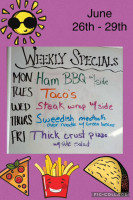 June
26th - 29th
WEEKLY SPECIALS
MON Ham BBQ w/ side
TUES Tacos
WED Steak wrap w/ side
THURS Sweedish meatballs
FRI Thick crust pizza
w/ side salad